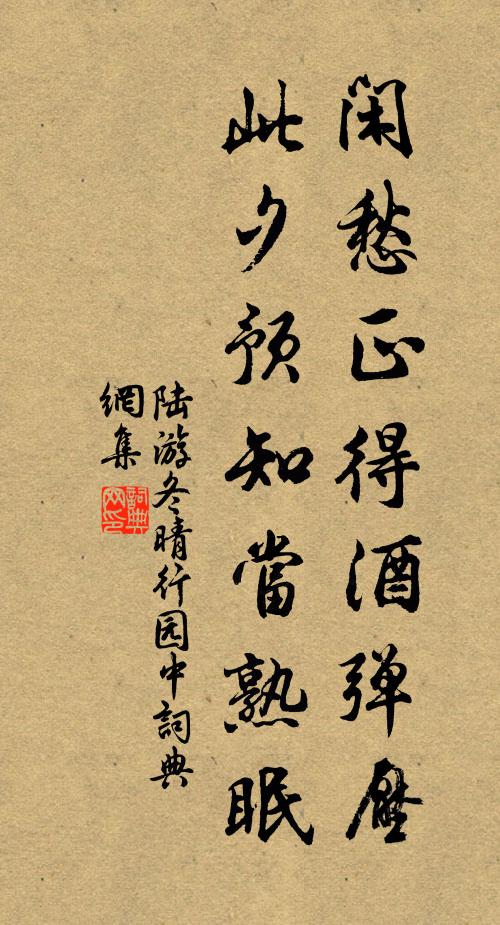 闲愁正得酒弹压
此夕预知當熟眠
陆游冬晴行园中詞典
網集
詞典网印